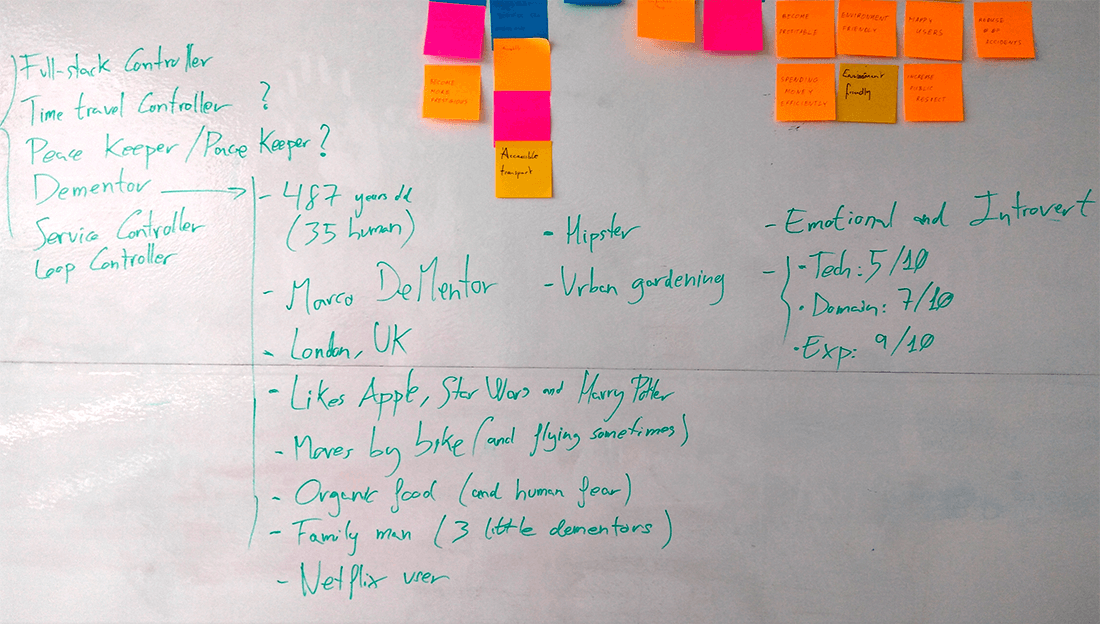 Full-stack Controller
Time travel Controller ?
Peace Keeper / Pace Keeper ?
Dementor
Service Controller
Loop Controller
- 487 years old
(35 human)
- Marco DeMentor
- London, UK
- Likes Apple, Star Wars and Harry Potter
- Moves by bike (and flying sometimes)
- Organic food (and human fear)
- Family man (3 little dementors)
- Netflix user
- Hipster
- Urban gardening
- Emotional and Introvert
- Tech: 5/10
• Domain: 7/10
• Exp: 9/10
BECOME
MORE
Accessible
transport
BECOME
PROFITABLE
ENVIRONMENT
FRIENDLY
HAPPY
USERS
REDUCE
# OF
ACCIDENTS
SPENDING
MONEY
EFFICIENTLY
Environment
friendly
INCREASE
PUBLIC
RESPECT